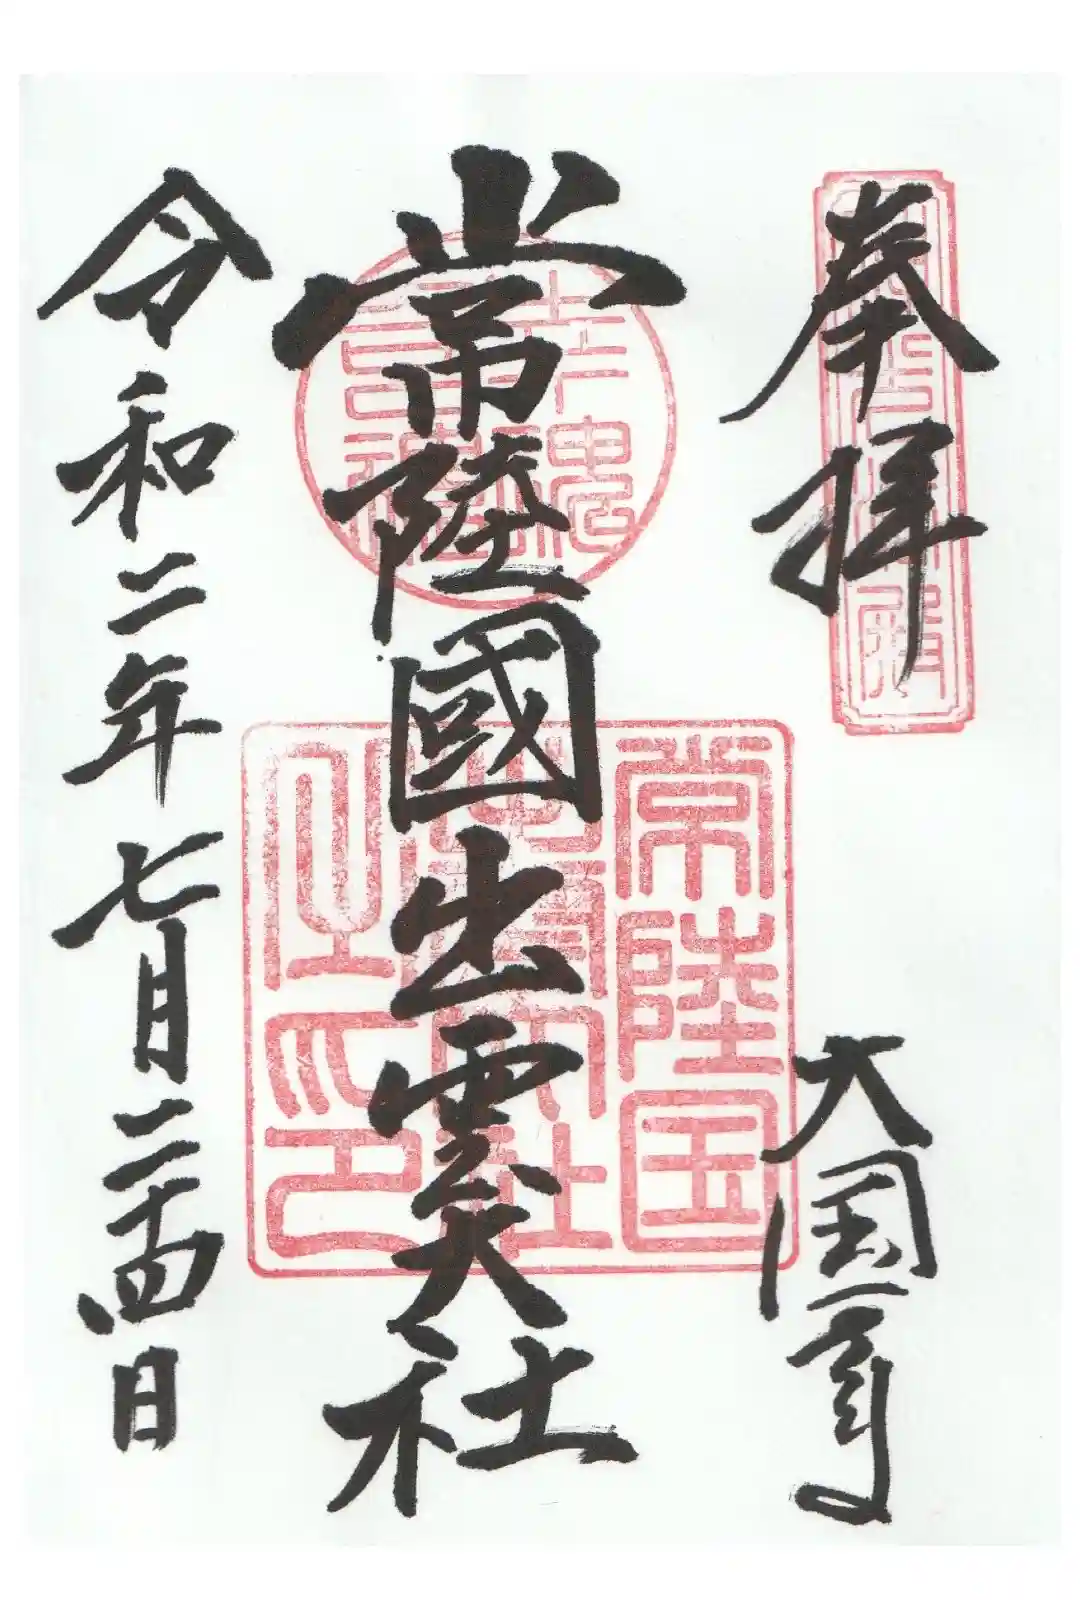 奉拝
大国
常陸國出雲大社
令和二年七月二十四日
幸魂
常陸国
出雲大社
之印